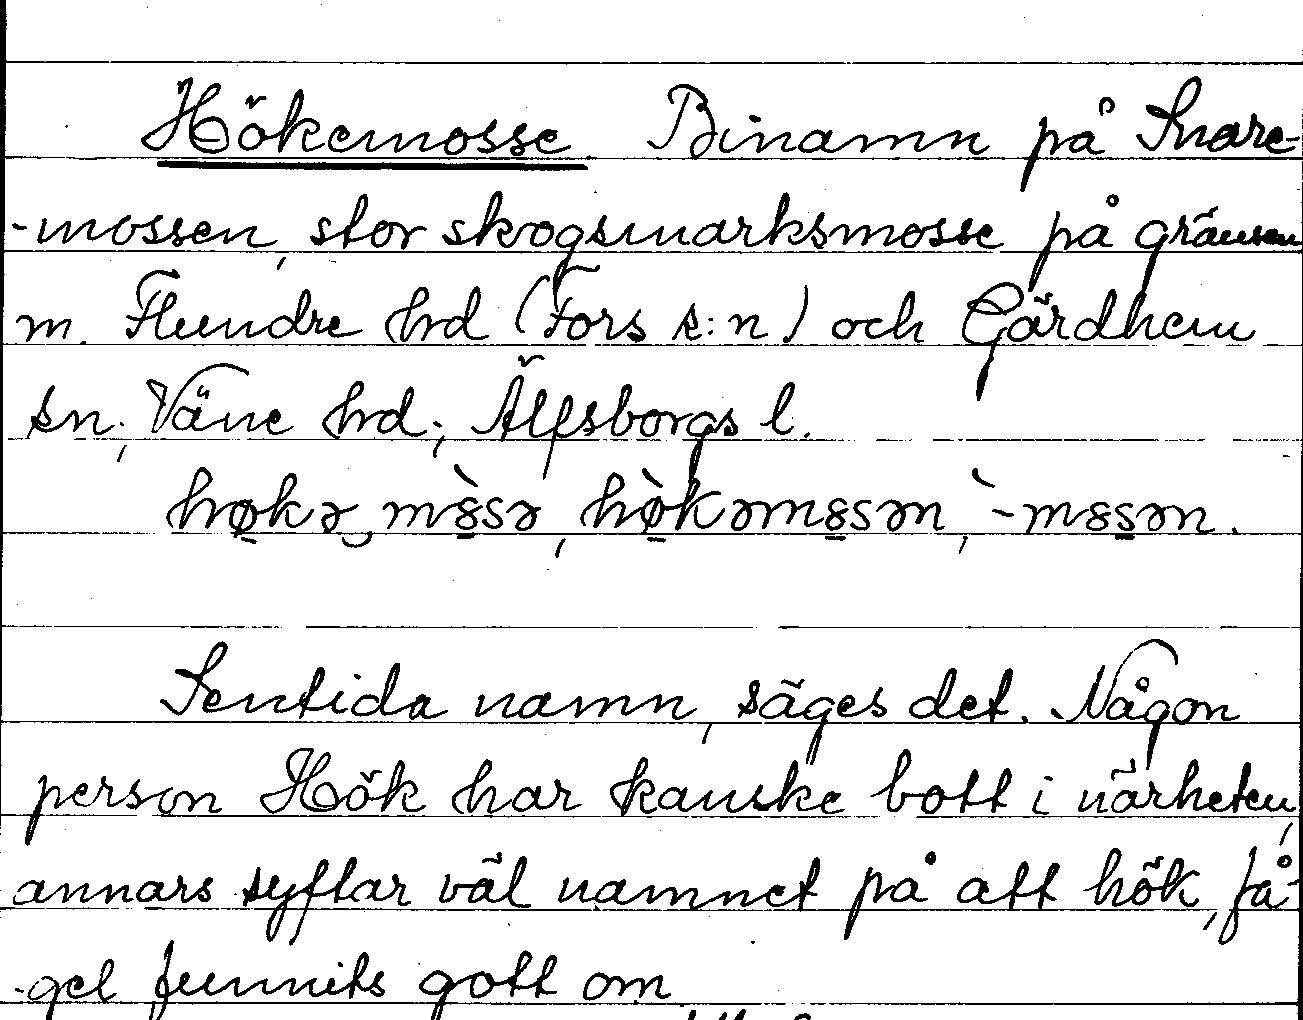 Hökemosse Binamn på Snare-
-mossen, stor skogsmarksmosse på gränsen
m. Flundre hrd (Fors s:n) och Gärdhem
sn, Väne hrd, Älfsborgs l.
hø̱kə‿m8̱̀sə, hø̱̀kəm8̱sən, `-m8s̱ən.
Sentida namn, säges det. Någon
person Hök har kanske bott i närheten,
annars syftar väl namnet på att hök, få-
-gel funnits gott om